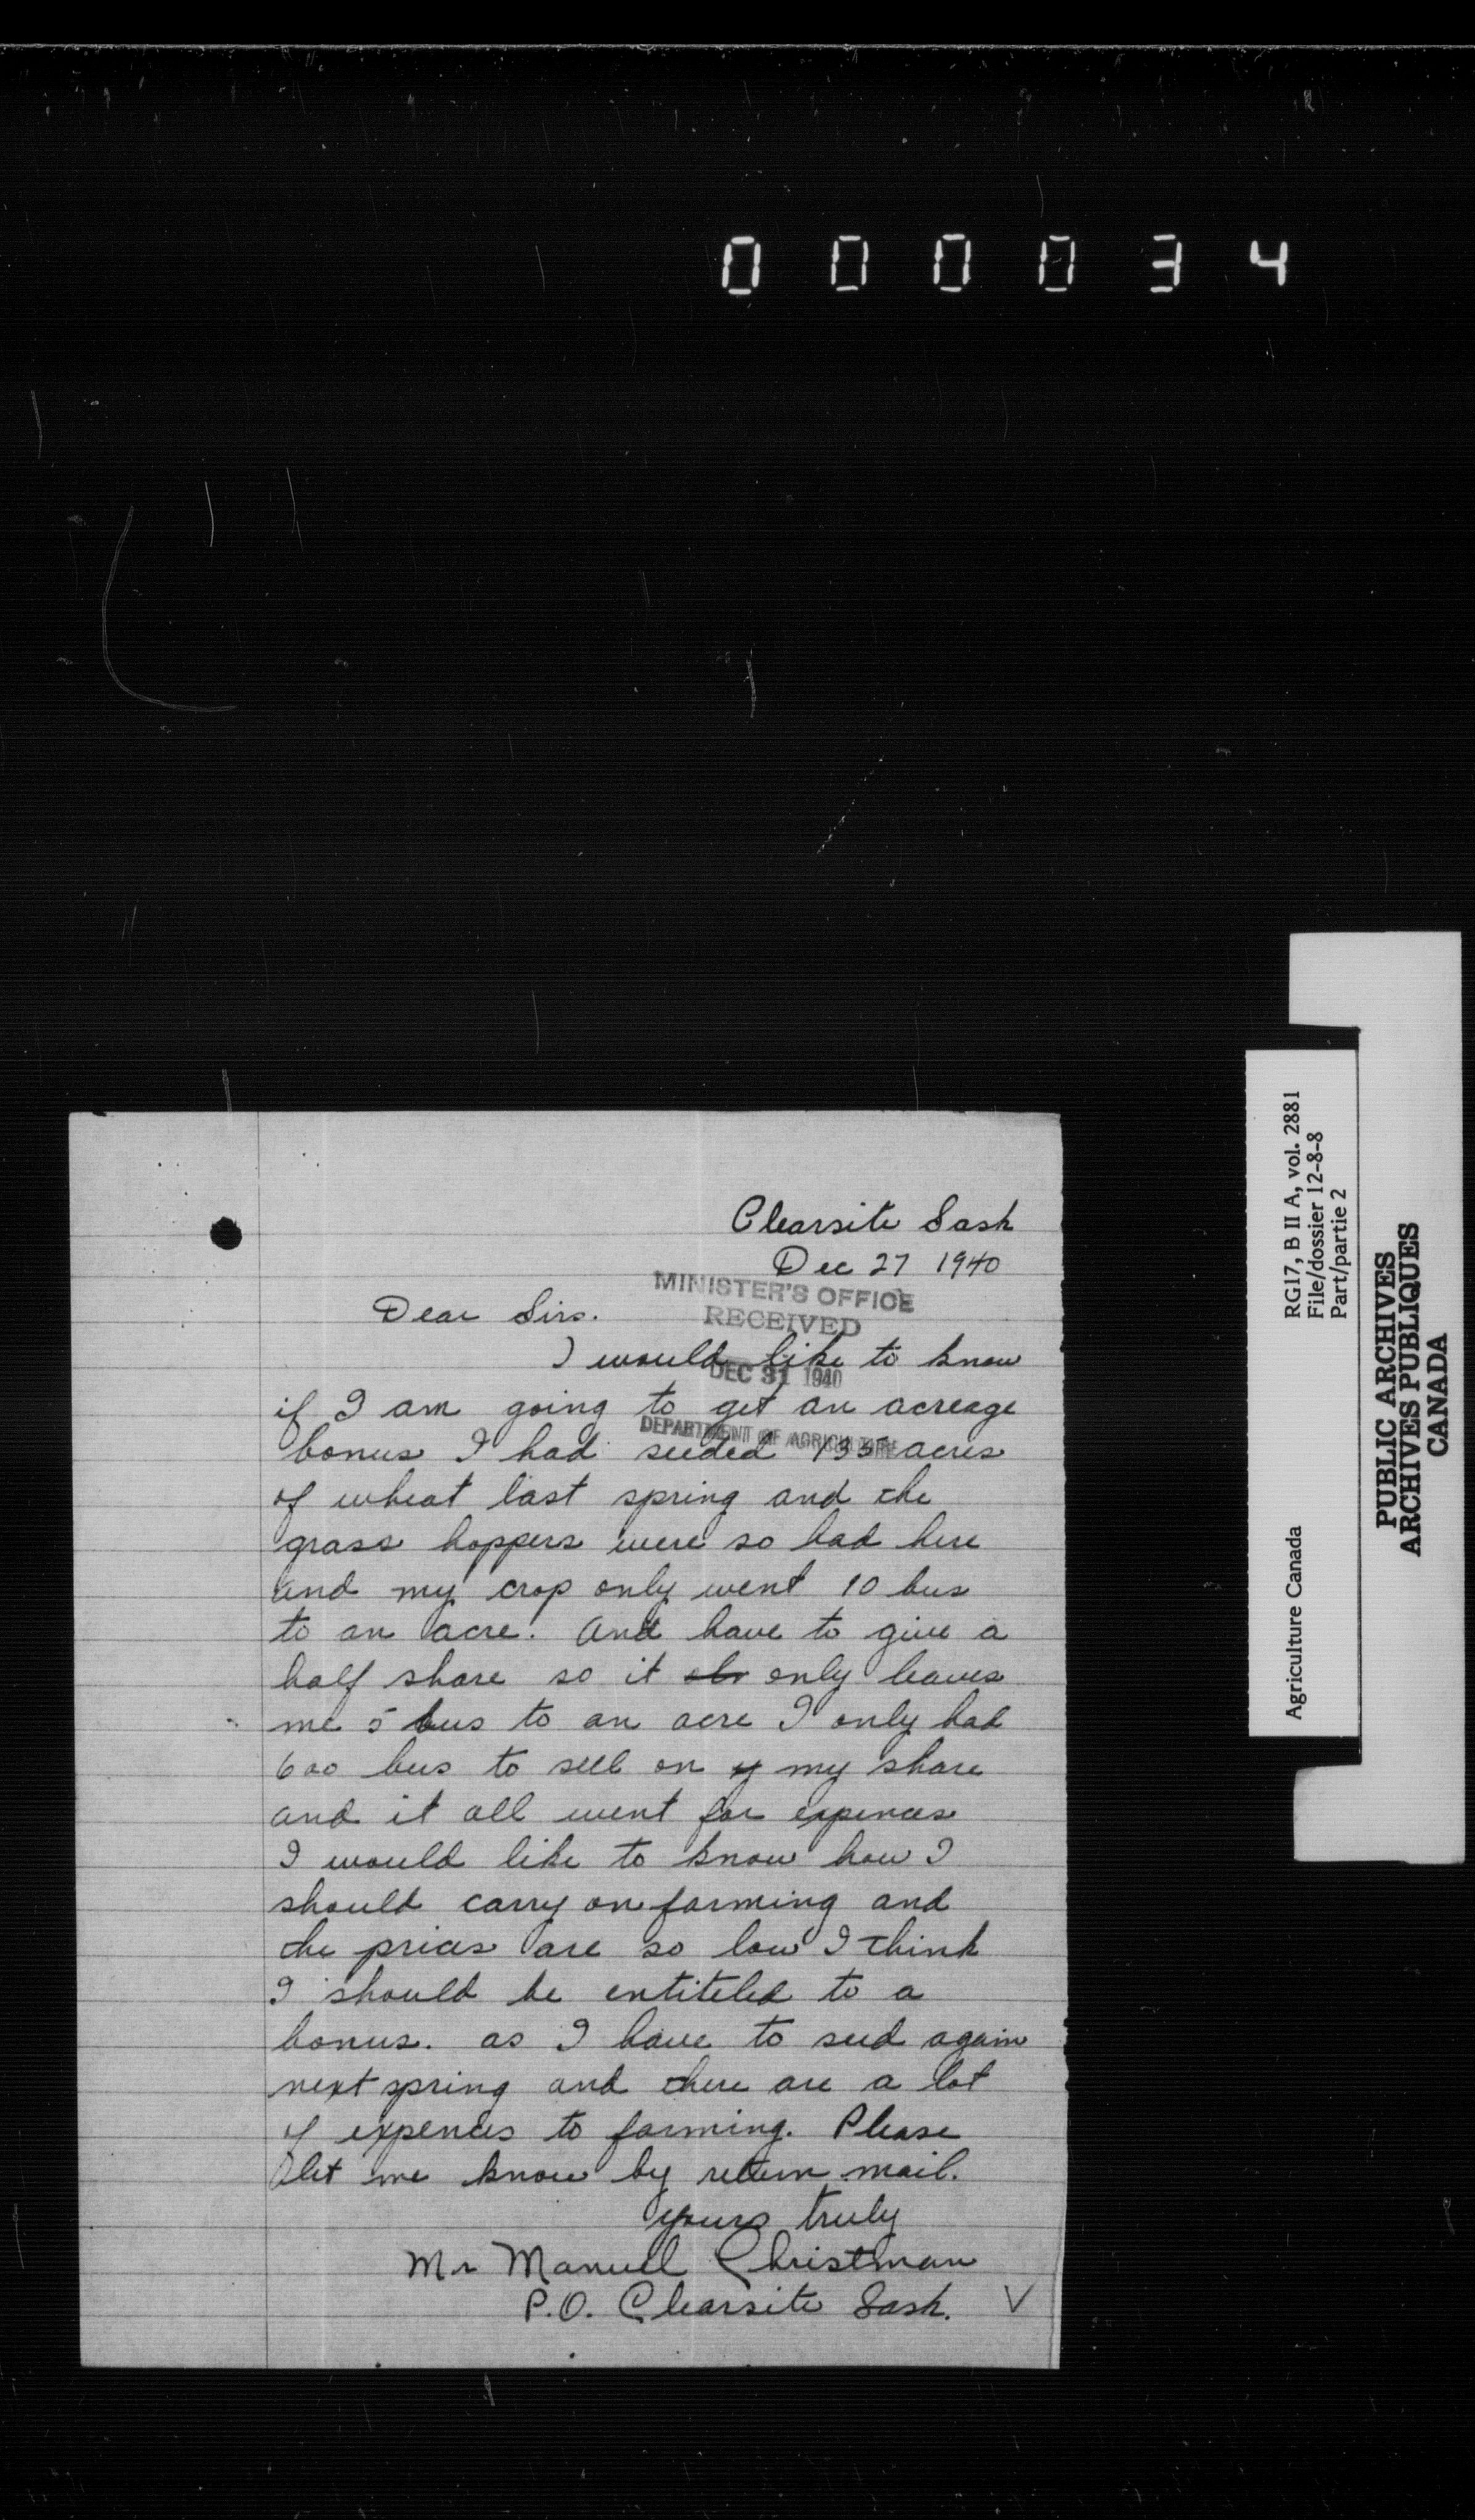 0 0 0 0 3 4
Clearsite Sask
Dec 27 1940
MINISTER'S OFFICE
RECEIVED
DEC 31 1940
DEPARTMENT OF AGRICULTURE
Dear Sirs.
I would like to know
if I am going to get an acreage
bonus I had seeded 135 acres
of wheat last spring and the
grass hoppers were so bad here
and my crop only went 10 bus
to an acre. And have to give a
half share so it only leaves
me 5 bus to an acre I only had
600 bus to sell on my share
and it all went for expences
I would like to know how I
should carry on farming and
the prices are so low I think
I should be entiteled to a
bonus. as I have to seed again
next spring and there are a lot
of expences to farming. Please
let me know by return mail.
yours truly
Mr Manuel Christman
P.O. Clearsite Sask.
Agriculture Canada
RG17, B II A, vol. 2881
File/dossier 12-8-8
Part/partie 2
PUBLIC ARCHIVES
ARCHIVES PUBLIQUES
CANADA